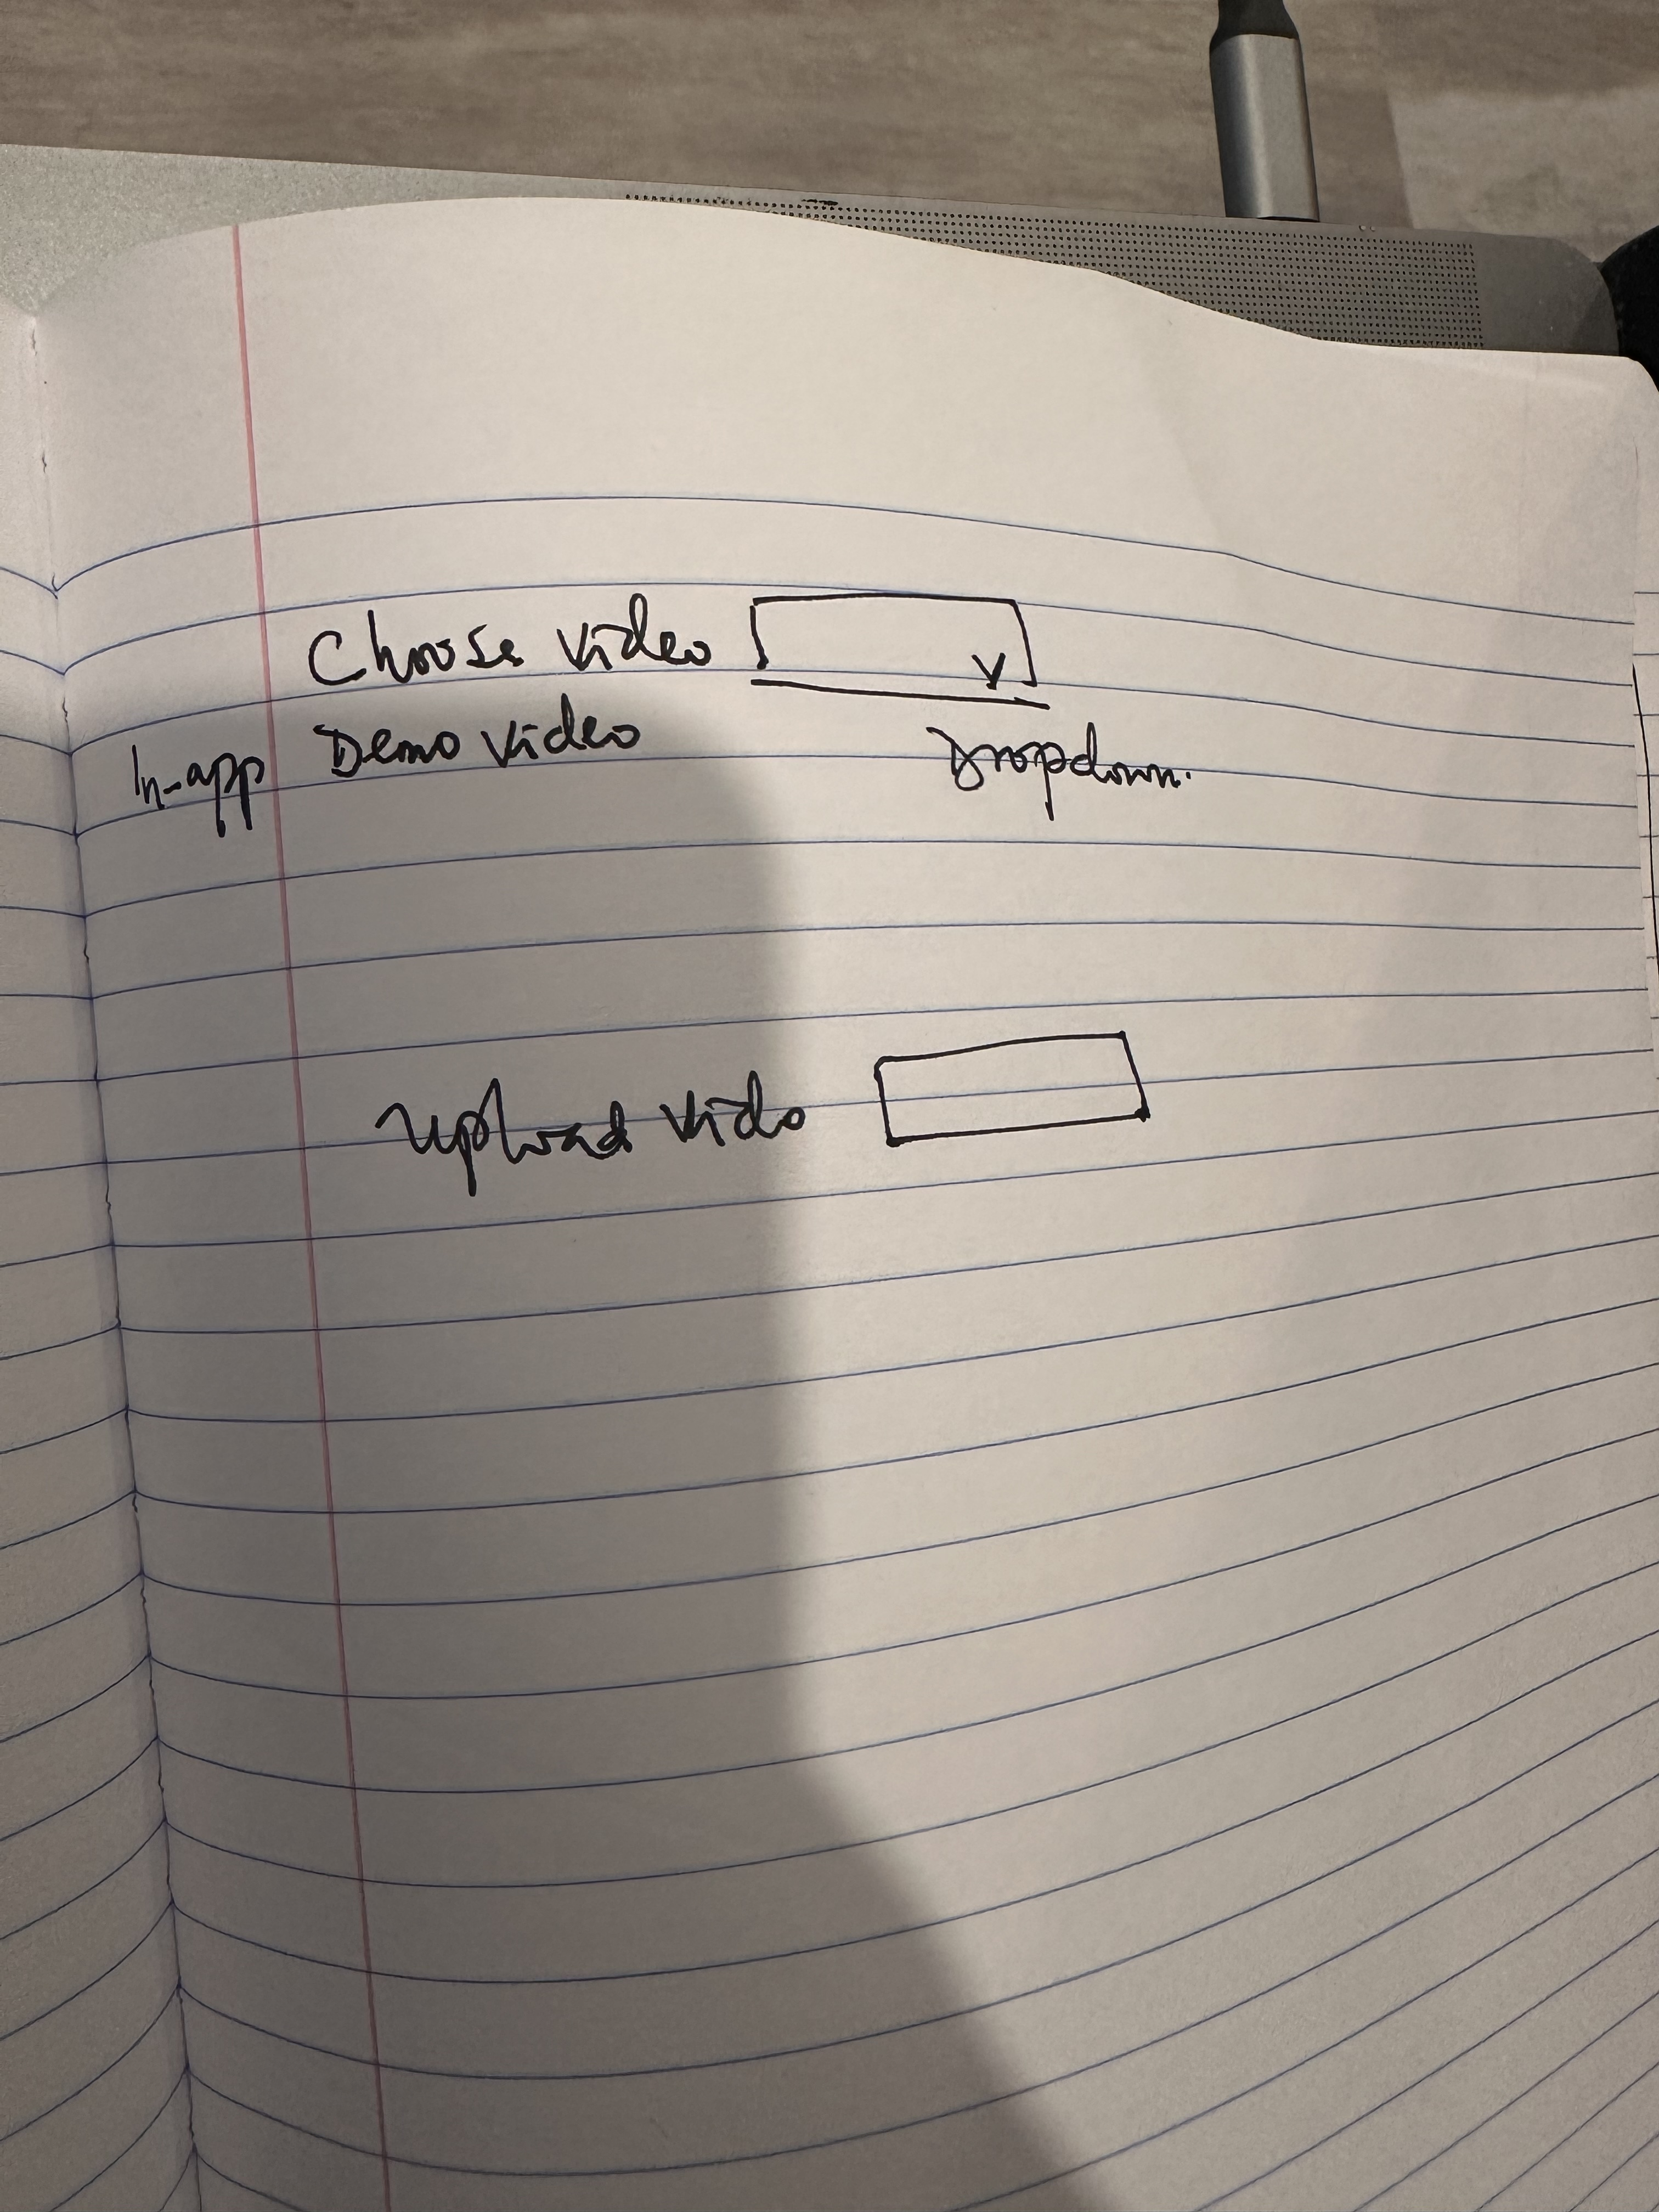 Choose video
In-app Demo Video
Dropdown.
Upload Vido